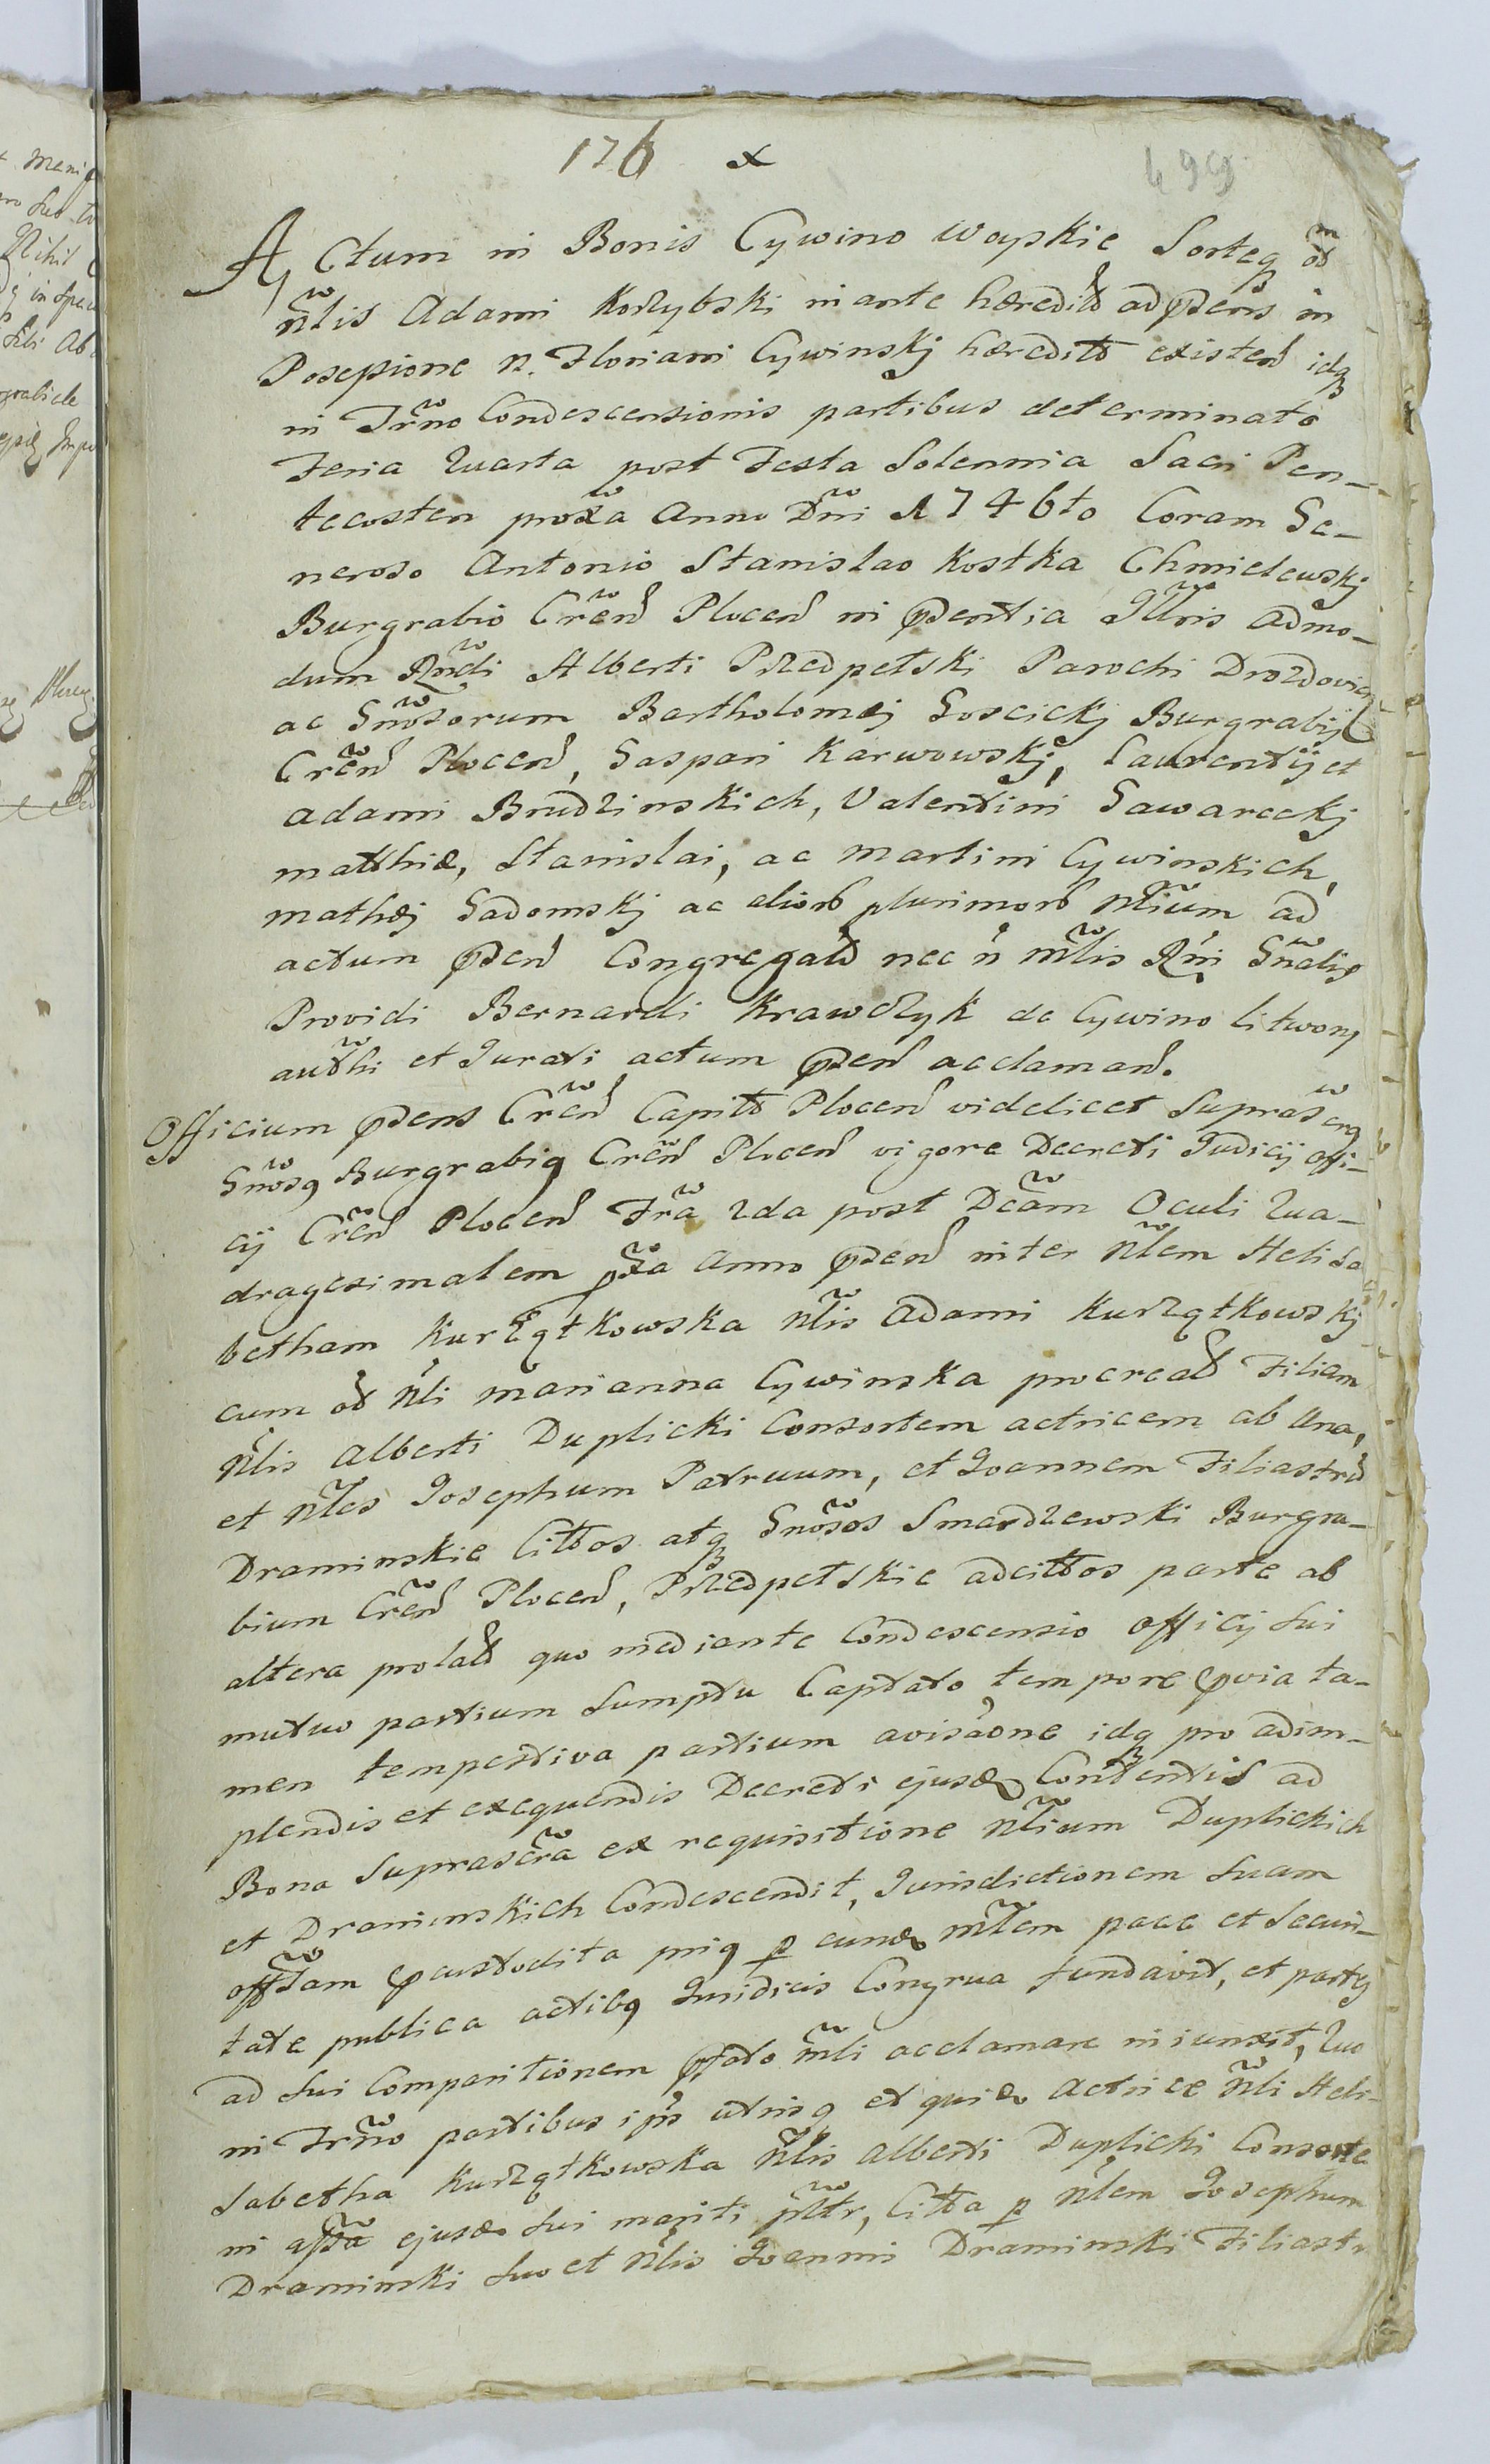 176 x 499
Actum in Bonis Cywino woyskie Sorteq̃ oĺ m
ñlis Adami Kossybski in ante hæredit̃ ad p̃sens in
Possessione N. Floriani Cywinskj hæredit̃ existeñ idq̃
in Trño Condescensionis partibus determinato
Feria Quarta post Festa Solennia Sacri Pen-
tecosten proxã Anno Dñi 1746to Coram Ge-
neroso Antonio Stanislao Kostka Chmielewskj
Burgrabio Creñ Ploceñ in p̃sentia Illris admo-
dum Rñdi Alberti Przedpełski Parochi Drozdovieñ
ac Gnõsorum Bartholomæj Goscickj Burgrabij
Creñ Ploceñ, Gaspari Karwowskj, Laurentij et
Adami Brudzinskich, Valentini Gawareckj
Matthiæ, Stanislai, ac Martini Cywinskich,
Mathæj Sadomskj ac aliorõ plurimorõ Nlium ad
actum p̃señ Congregat̃ nec ñ mlis Rñi Gñalis
Providi Bernardi Krawczyk de Cywino litwony
auth̃i et Jurati actum p̃señ acclamañ.
Officium p̃sens Creñ Capit̃ Ploceñ videlicet Suprascrp̃
Gnõsq Burgrabiq Creñ Ploceñ vigore Decreti Judicij offi-
cij Creñ Ploceñ Frã 2da post Dcãm Oculi Qua-
dragesimalem p̃xã Anno p̃señ inter Nlem Helisa
betham Kurzątkowska Nlis Adami Kurzątkowskj
cum oĺ Nli Marianna Cywinska procreat̃ Filiam
Nlis Alberti Duplicki Consortem actricem ab una,
et Nles Josephum Patruum, et Joannem Filiastrũ
Draminskie Cittos atq̃ Gnõsos Smardzewski Burgra-
bium Creñ Ploceñ, Przedpełskie adcittos parte ab
altera prolat̃ quo mediante Condescensio officij sui
mutuo partium Sumptu Captato tempore p̃via ta-
men tempestiva partium avisãone idq̃ pro adim-
plendis et exequendis Decreti ejusd̃ Contentis ad
Bona Suprascrã ex requisitione Nlium Duplickich
et Draminskich Condescendit, Jurisdictionem Suam
offlam p̃custodita priq̃ p eund̃ mlem pace et Securi-
tate publica actibq̃ Juridicis Congrua fundavit, et partes
ad sui Comparitionem p̃fato mli acclamare iniunxit, Quo
in Trño partibus ipĩs utrisq̃ et quid̃ Actrice Nli Heli-
sabetha Kurzątkowska Nlis Alberti Duplicki Consorte
in assã ejusd̃ Sui mariti pltr, Citta p Nlem Josephum
Draminski Suo et Nlis Joanni Draminski Filiastr